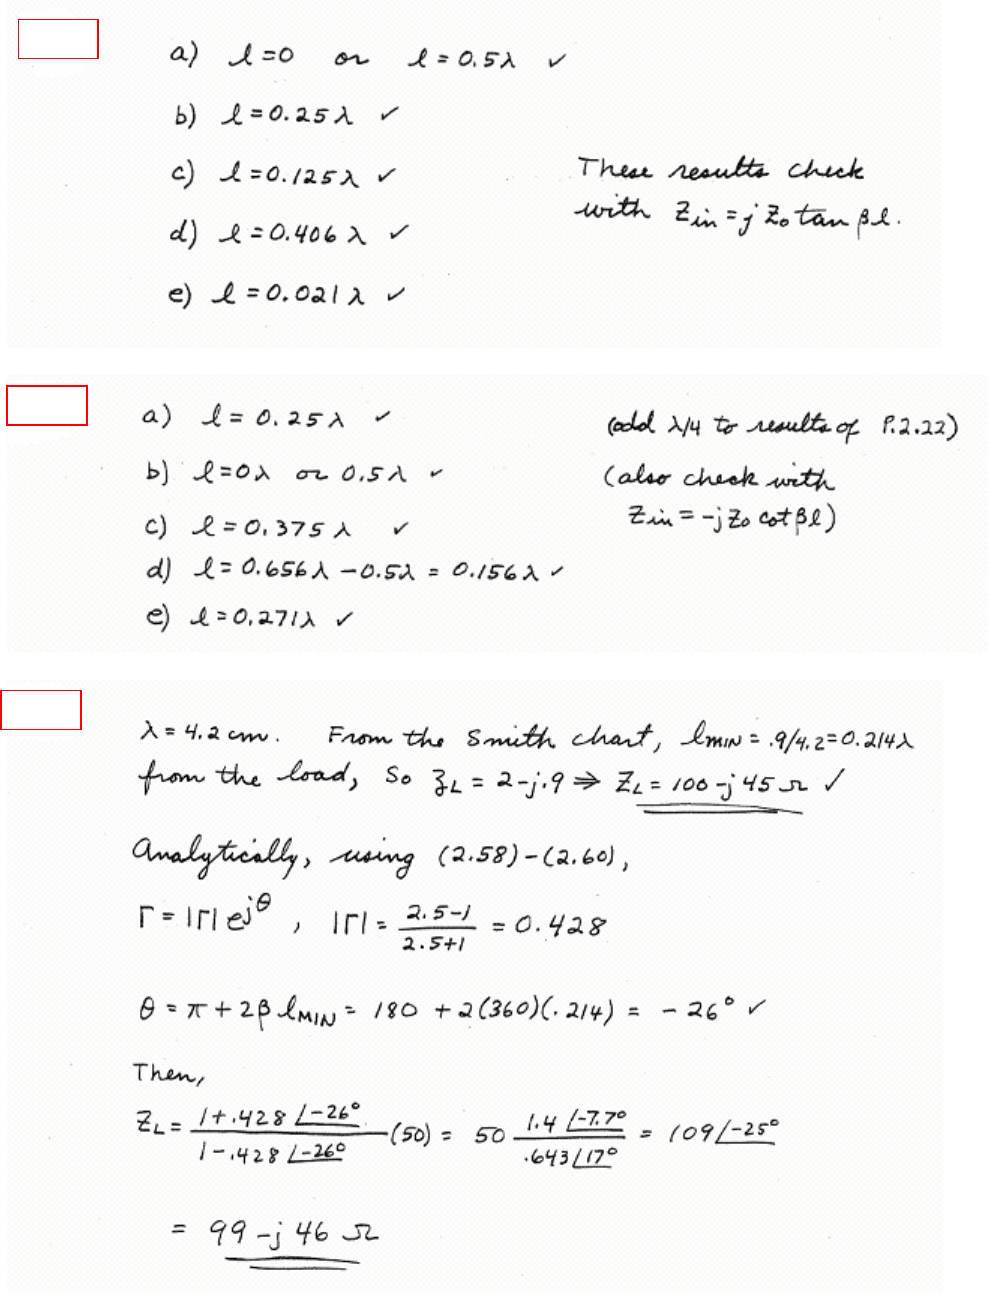 a) l=0 or l=0.5λ ✓
b) l=0.25λ ✓
c) l=0.125λ ✓
d) l=0.406λ ✓
e) l=0.021λ ✓
These results check
with Zin=jZ₀tan βl.
a) l=0.25λ ✓
b) l=0λ or 0.5λ ✓
c) l=0.375λ ✓
d) l=0.656λ-0.5λ=0.156λ ✓
e) l=0.271λ ✓
(add λ/4 to results of P.2.22)
(also check with
Zin=-jZ₀cotβl)
λ=4.2cm. From the Smith chart, lMIN=.9/4.2=0.214λ
from the load, so zL=2-j.9 ⇒ ZL=100-j45Ω ✓
Analytically, using (2.58)-(2.60),
Γ=|Γ|e^jθ, |Γ|=(2.5-1)/(2.5+1)=0.428
θ=π+2βlMIN=180+2(360)(.214)=-26° ✓
Then,
ZL=(1+.428∠-26°)/(1-.428∠-26°)(50)=50 (1.4∠-7.7°)/(.643∠17°)=109∠-25°
=99-j46Ω